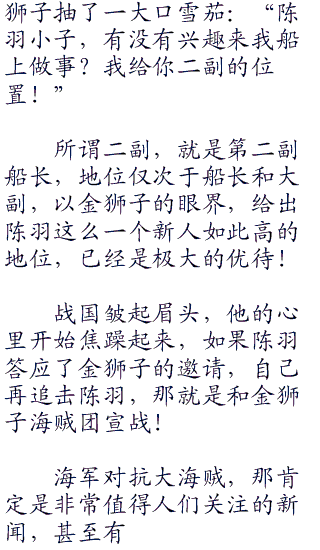 狮子抽了一大口雪茄：“陈
羽小子，有没有兴趣来我船
上做事？我给你二副的位
置！”
所谓二副，就是第二副
船长，地位仅次于船长和大
副，以金狮子的眼界，给出
陈羽这么一个新人如此高的
地位，已经是极大的优待！
战国皱起眉头，他的心
里开始焦躁起来，如果陈羽
答应了金狮子的邀请，自己
再追击陈羽，那就是和金狮
子海贼团宣战！
海军对抗大海贼，那肯
定是非常值得人们关注的新
闻，甚至有